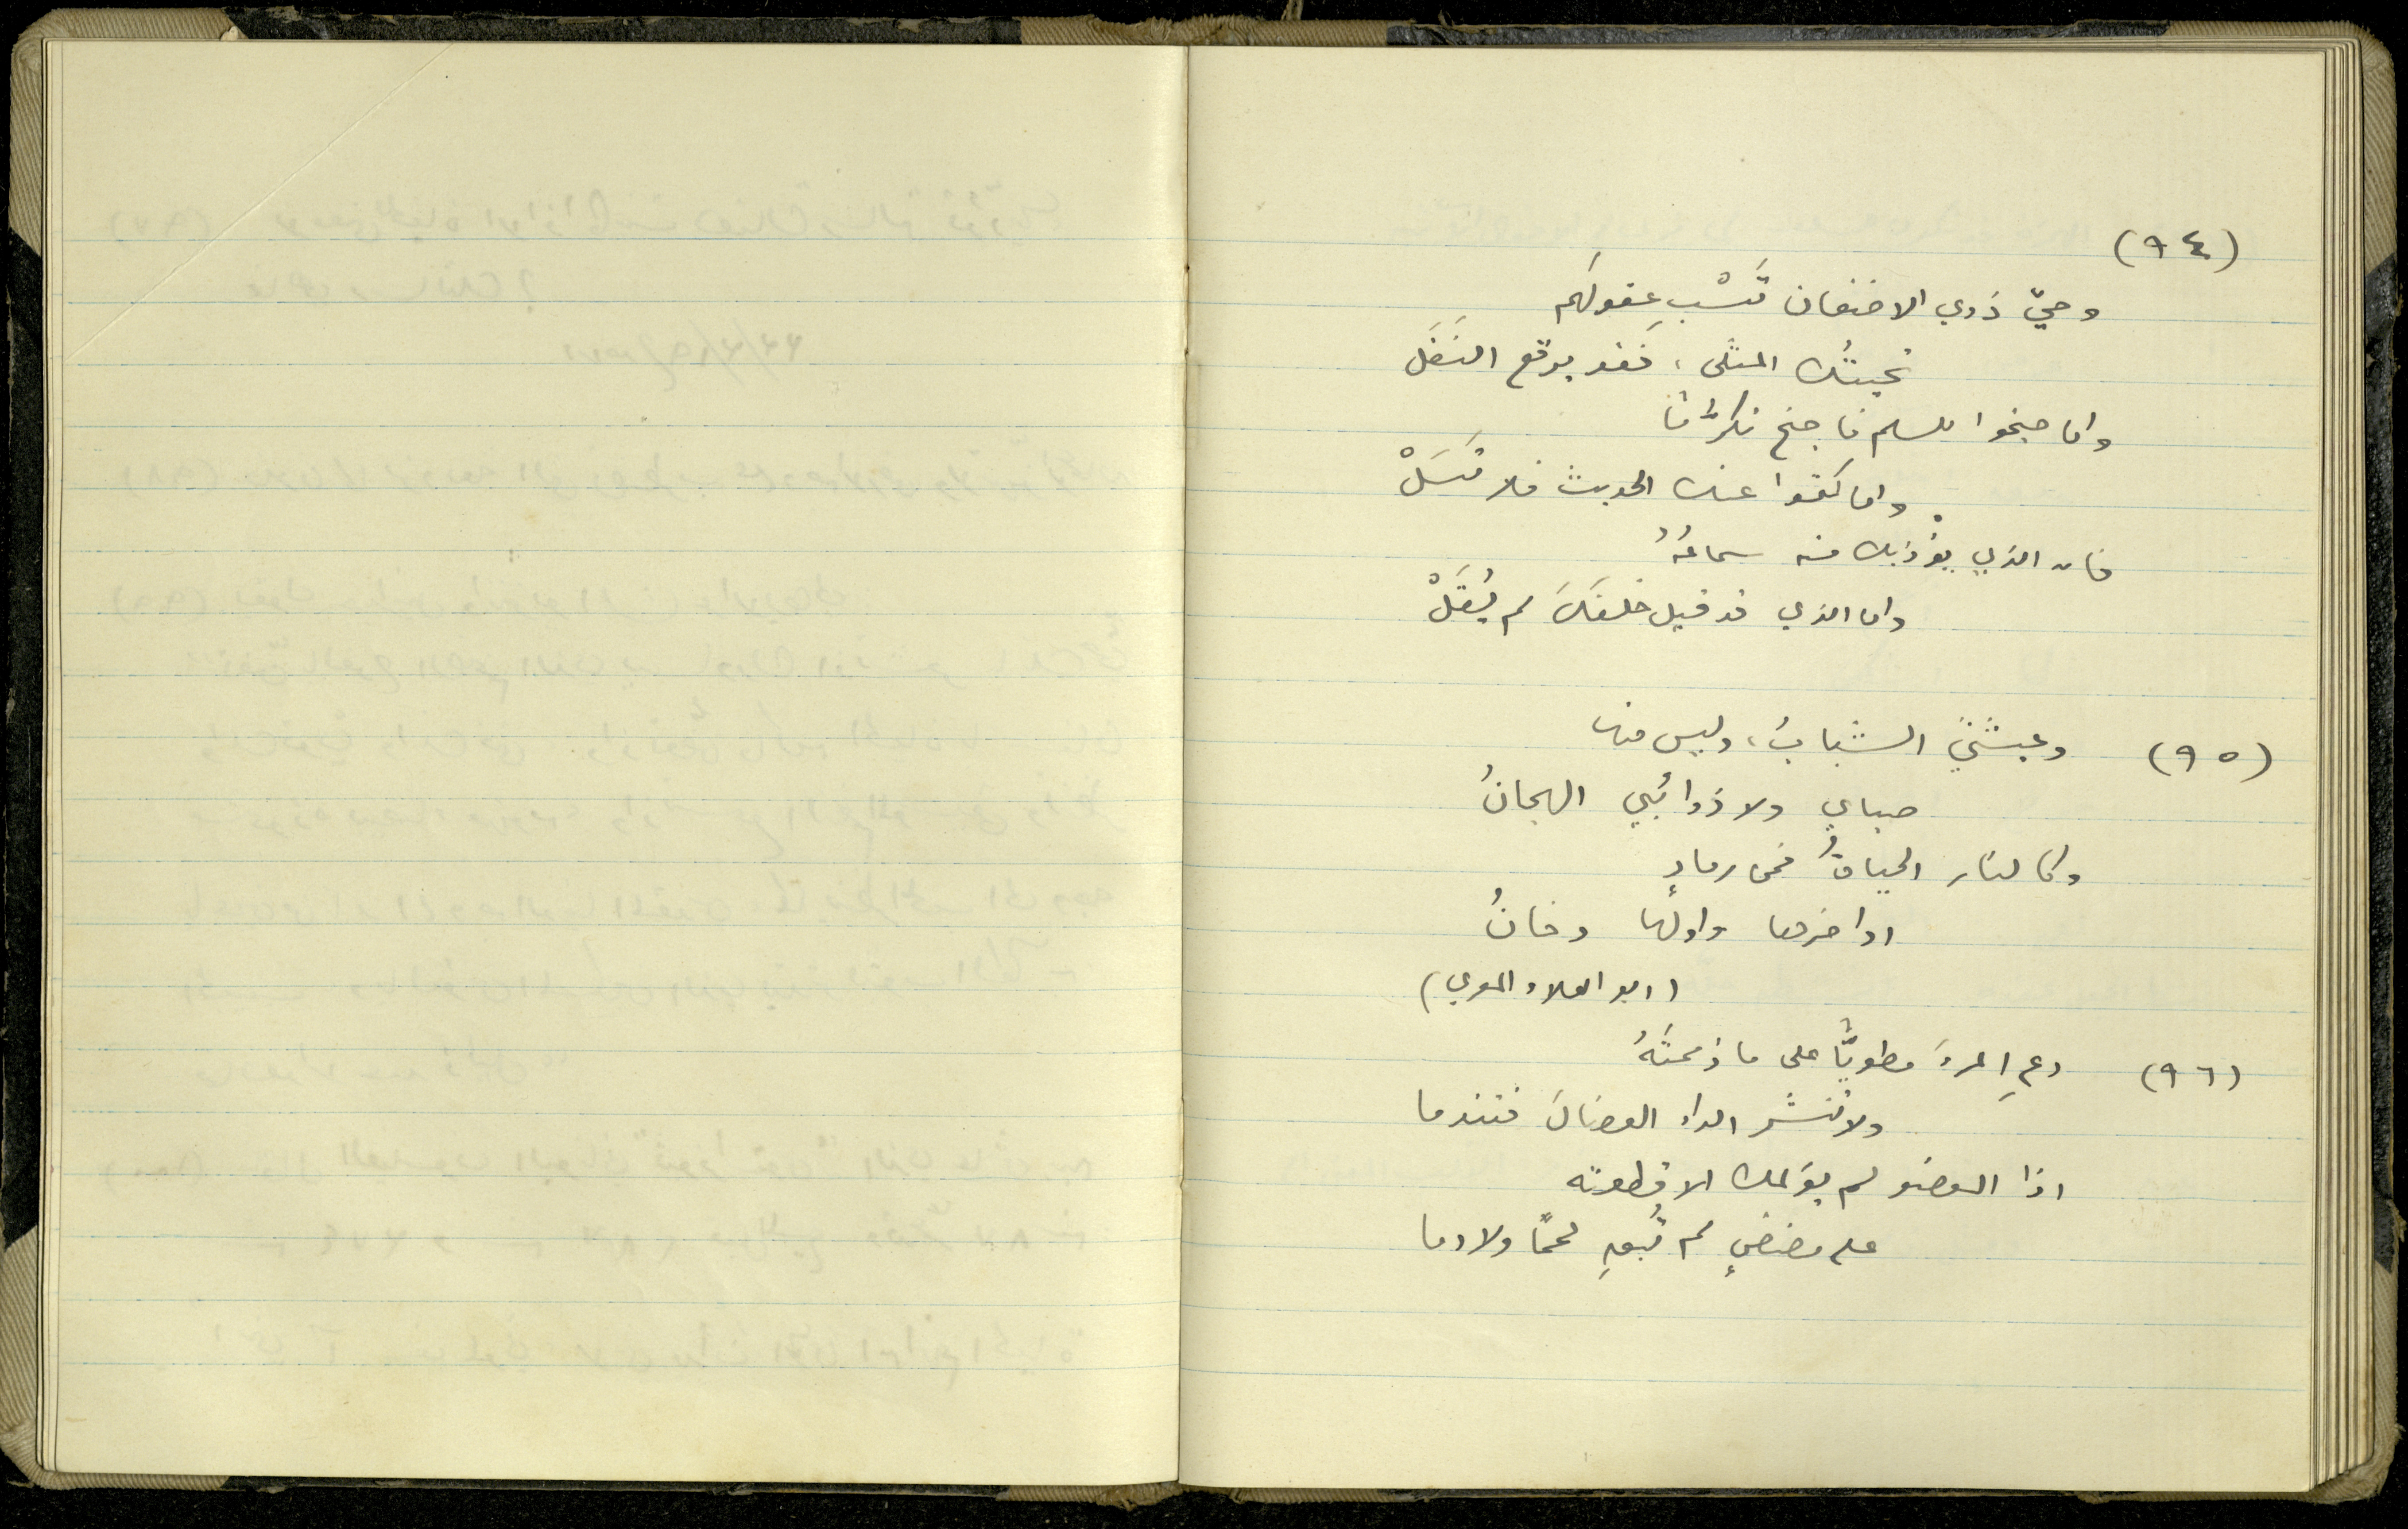 (٩٤)
وحيّ ذوي الاضغان تَسْبِ عقولهم
تحيتُك المثلى، فقد يرقع النَغَل
واما جنحوا للسلم فاجنح تكرّمًا
واما كتموا عنك الحديث فلا تَسَلْ
فان الذي يؤذيك منه سماعُهُ
واما الذي قد قيل خلفكَ لم يُقَلْ
(٩٥) وعيشتيَ الشبابُ، وليس منها
صبايَ ولا ذوائبي الهجانُ
وكالنار الحياةُ فمن رمادٍ
اواخرها واولها دخانُ
(ابو العلاء المعري)
(٩٦) دعِ المرءَ مطويًّا على ما ذممتَهُ
ولا تنشر الداء العضالَ فتندما
اذا العضو لم يؤلمك الا قطعته
على مضضٍ لم تُبقِ لحمًا ولا دما